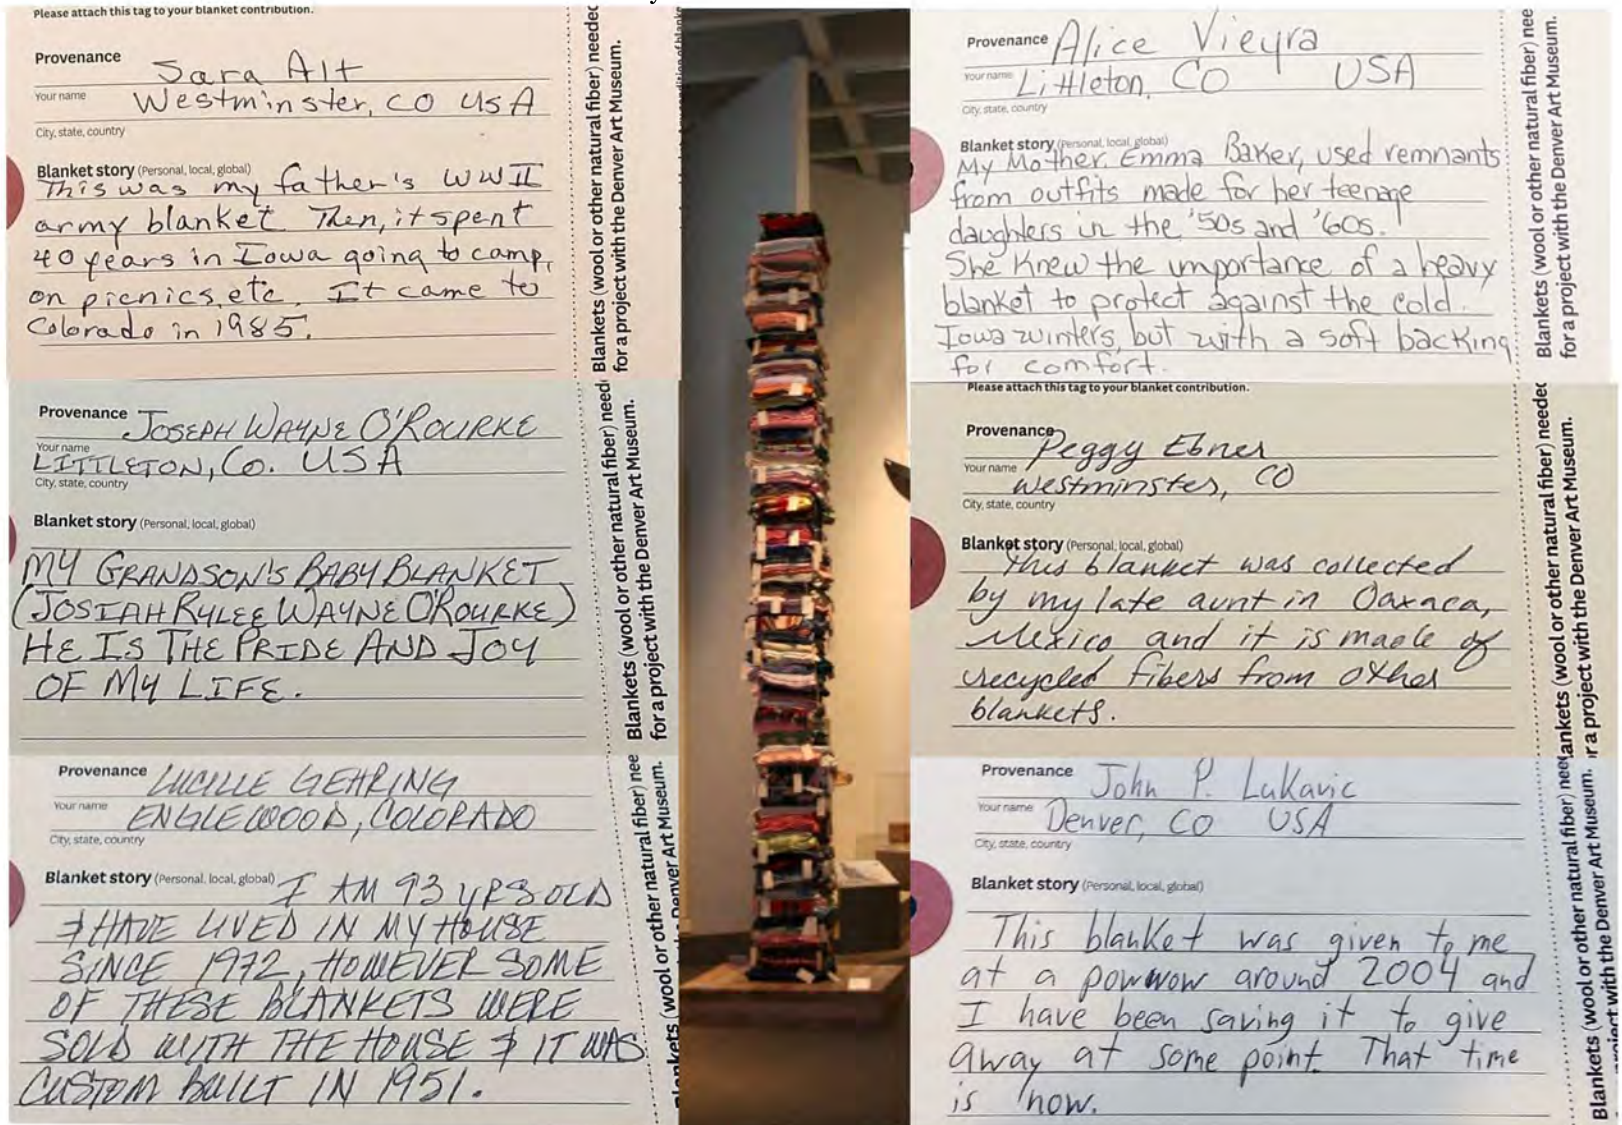 Please attach this tag to your blanket contribution.
Provenance
Sara Alt
Your name
Westminster, CO USA
City, state, country
Blanket story (Personal, local, global)
This was my father's WWII
army blanket Then, it spent
40 years in Iowa going to camp,
on picnics, etc. It came to
Colorado in 1985.
Blankets (wool or other natural fiber) needed
for a project with the Denver Art Museum.
Provenance
JOSEPH WAYNE O'ROURKE
Your name
LITTLETON, CO. USA
City, state, country
Blanket story (Personal, local, global)
MY GRANDSON'S BABY BLANKET
(JOSIAH RYLEE WAYNE O'ROURKE)
HE IS THE PRIDE AND JOY
OF MY LIFE.
Blankets (wool or other natural fiber) need
for a project with the Denver Art Museum.
Provenance
LUCILLE GEHRING
Your name
ENGLEWOOD, COLORADO
City, state, country
Blanket story (Personal, local, global)
I AM 93 YRS OLD
& HAVE LIVED IN MY HOUSE
SINCE 1972, HOWEVER SOME
OF THESE BLANKETS WERE
SOLD WITH THE HOUSE & IT WAS
CUSTOM BUILT IN 1951.
lankets (wool or other natural fiber) nee
Denver Art Museum.
Provenance
Alice Vieyra
Your name
Littleton, CO USA
City, state, country
Blanket story (Personal, local, global)
My Mother, Emma Baker, used remnants
from outfits made for her teenage
daughters in the '50s and '60s.
She knew the importance of a heavy
blanket to protect against the cold
Iowa winters, but with a soft backing
for comfort.
Blankets (wool or other natural fiber) nee
for a project with the Denver Art Museum.
Please attach this tag to your blanket contribution.
Provenance
Peggy Ebner
Your name
Westminster, CO
City, state, country
Blanket story (Personal, local, global)
This blanket was collected
by my late aunt in Oaxaca,
Mexico and it is made of
recycled fibers from other
blankets.
lankets (wool or other natural fiber) needed
r a project with the Denver Art Museum.
Provenance
John P. Lukavic
Your name
Denver, CO USA
City, state, country
Blanket story (Personal, local, global)
This blanket was given to me
at a powwow around 2004 and
I have been saving it to give
away at some point. That time
is now.
Blankets (wool or other natural fiber) nee
project with the Denver Art Museum.